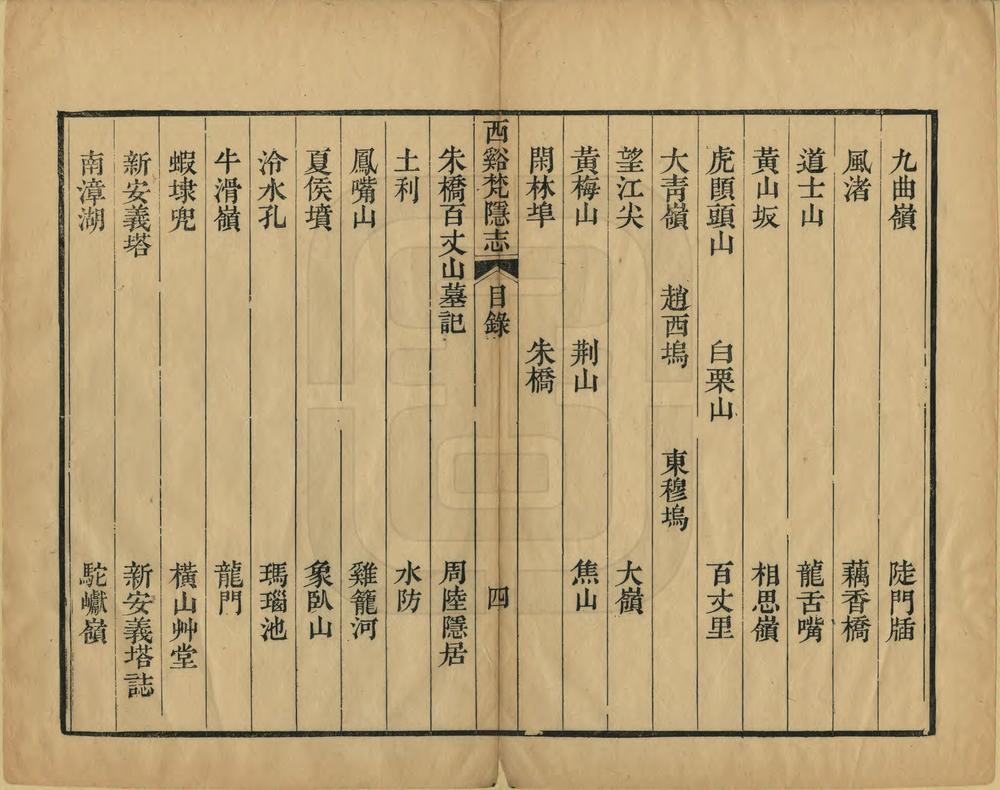 九曲嶺 陡門牐
風渚 藕香橋
道士山 龍舌嘴
黃山坂 相思嶺
虎頭山 白栗山 百丈里
大青嶺 趙西塢 東穆塢
望江尖 大嶺
黃梅山 荆山 焦山
閑林埠 朱橋
西谿梵隱志 目錄 四
朱橋百丈山墓記 周陸隱居
土利 水防
鳳嘴山 雞籠河
夏侯墳 象臥山
冷水孔 瑪瑙池
牛滑嶺 龍門
蝦埭兜 橫山艸堂
新安義塔 新安義塔誌
南漳湖 駝巘嶺